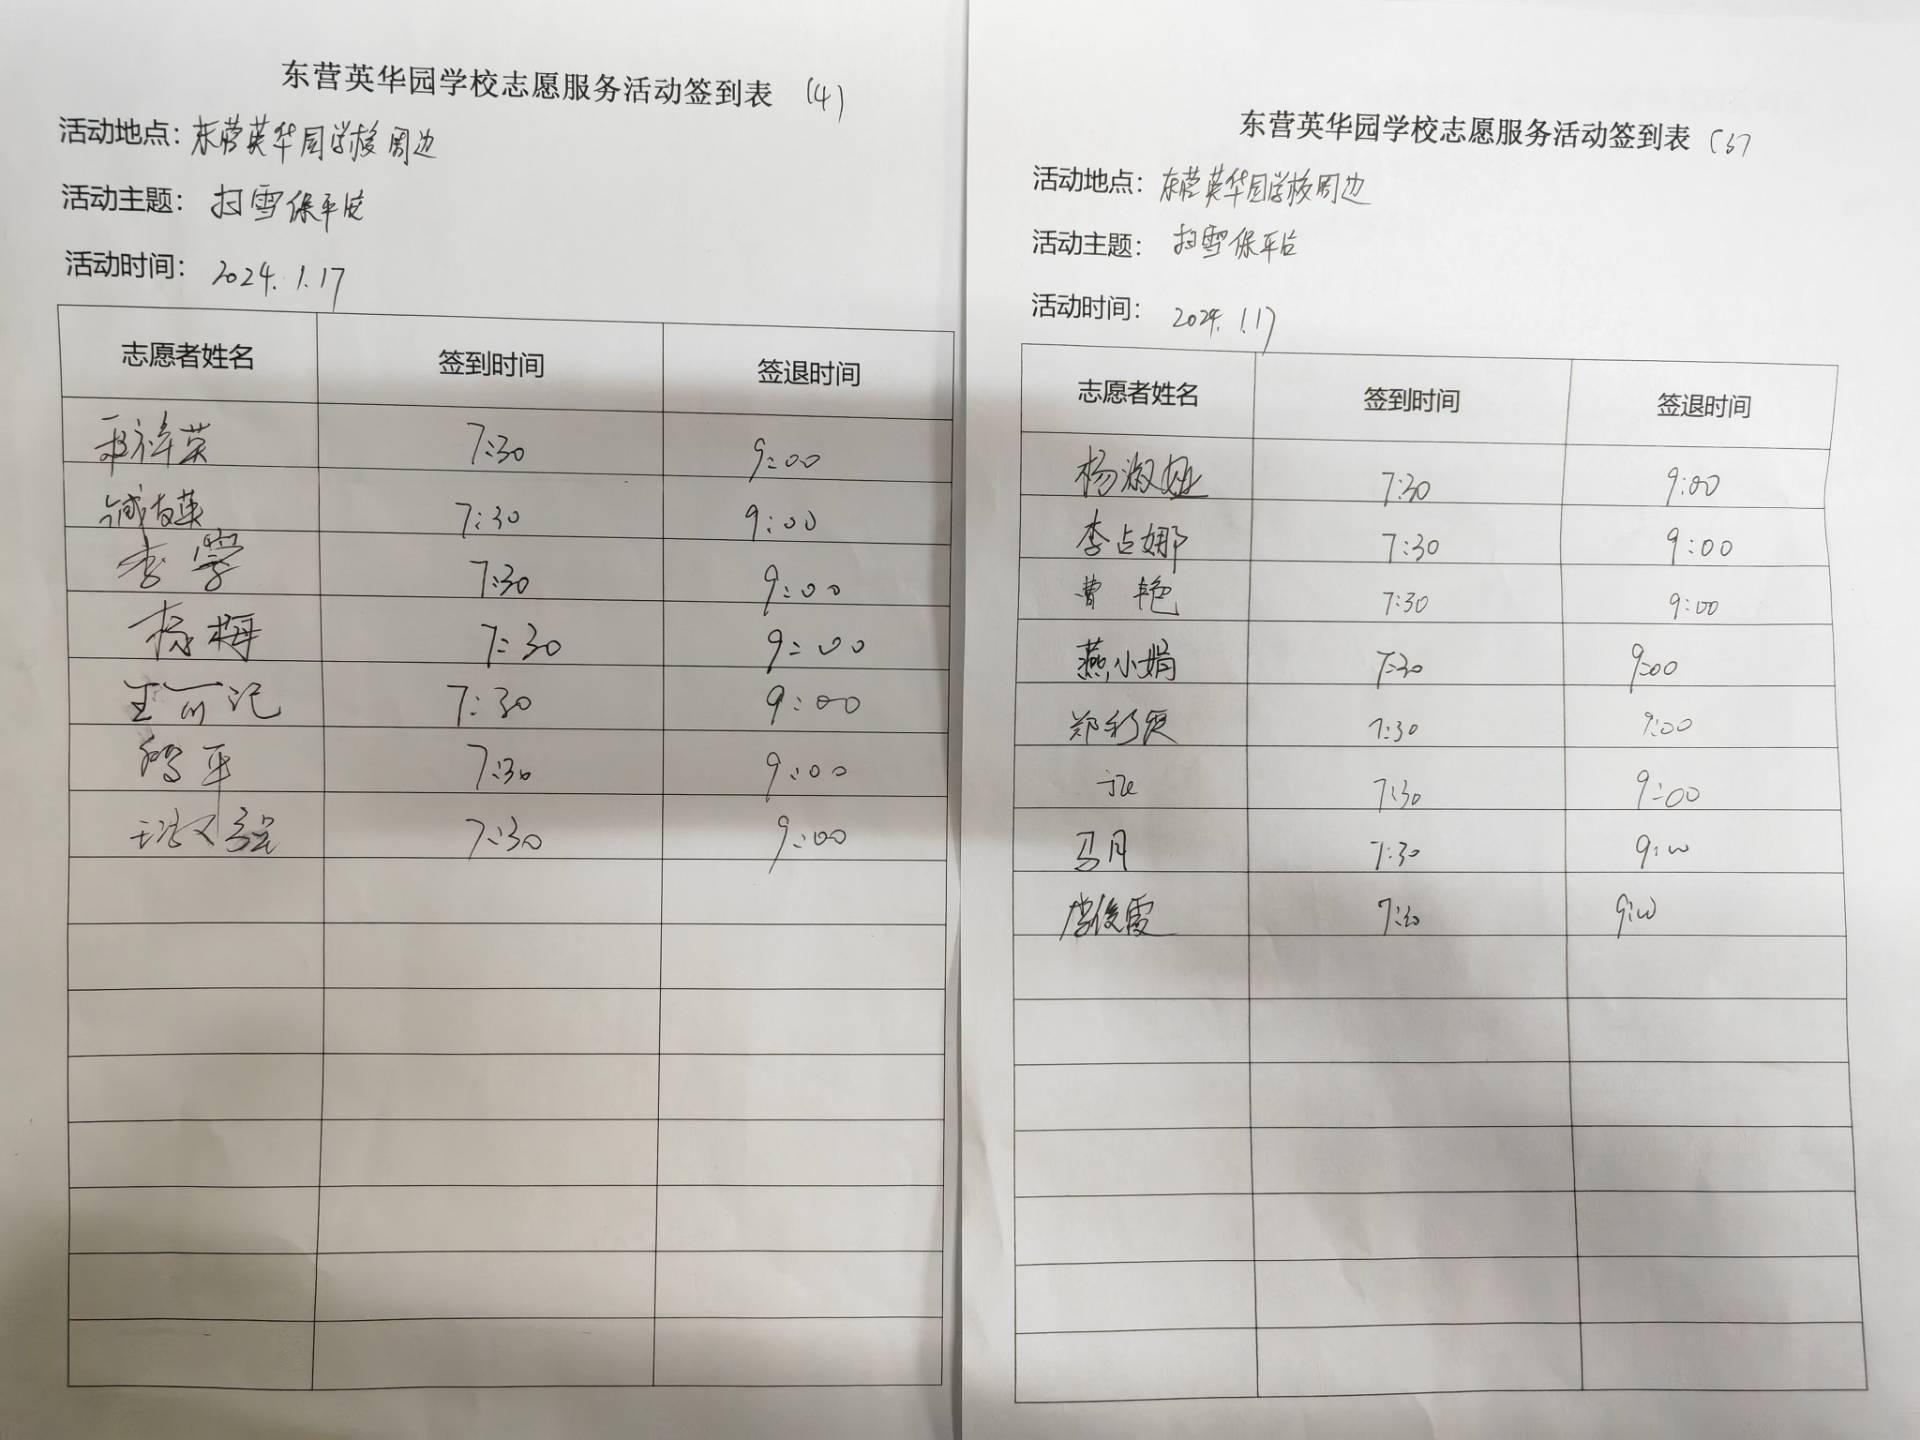 东营英华园学校志愿服务活动签到表 (4)
活动地点：东营英华园学校周边
活动主题：扫雪保平安
活动时间：2024.1.17
志愿者姓名 签到时间 签退时间
7:30 9:00
7:30 9:00
李 7:30 9:00
杨梅 7:30 9:00
王 7:30 9:00
平 7:30 9:00
7:30 9:00
东营英华园学校志愿服务活动签到表
活动地点：东营英华园学校周边
活动主题：扫雪保平安
活动时间：2024.1.17
志愿者姓名 签到时间 签退时间
杨淑娅 7:30 9:00
李占娜 7:30 9:00
曹艳 7:30 9:00
燕小娟 7:30 9:00
郑 7:30 9:00
7:30 9:00
马月 7:30 9:00
李俊霞 7:30 9:00